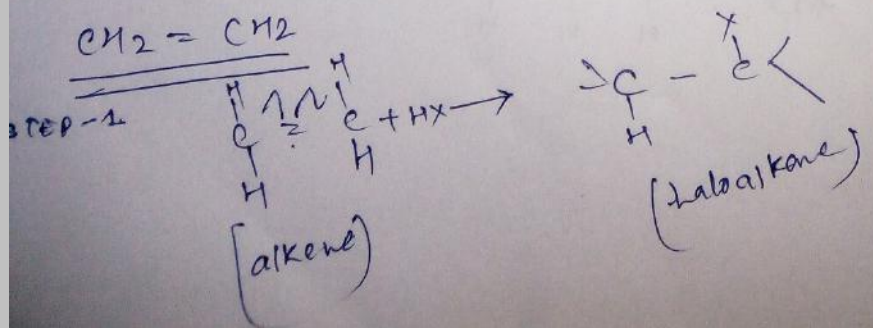 CH2 = CH2
STEP-1
H H X
C = C + HX → >C - C<
H H H
(alkene) (haloalkane)